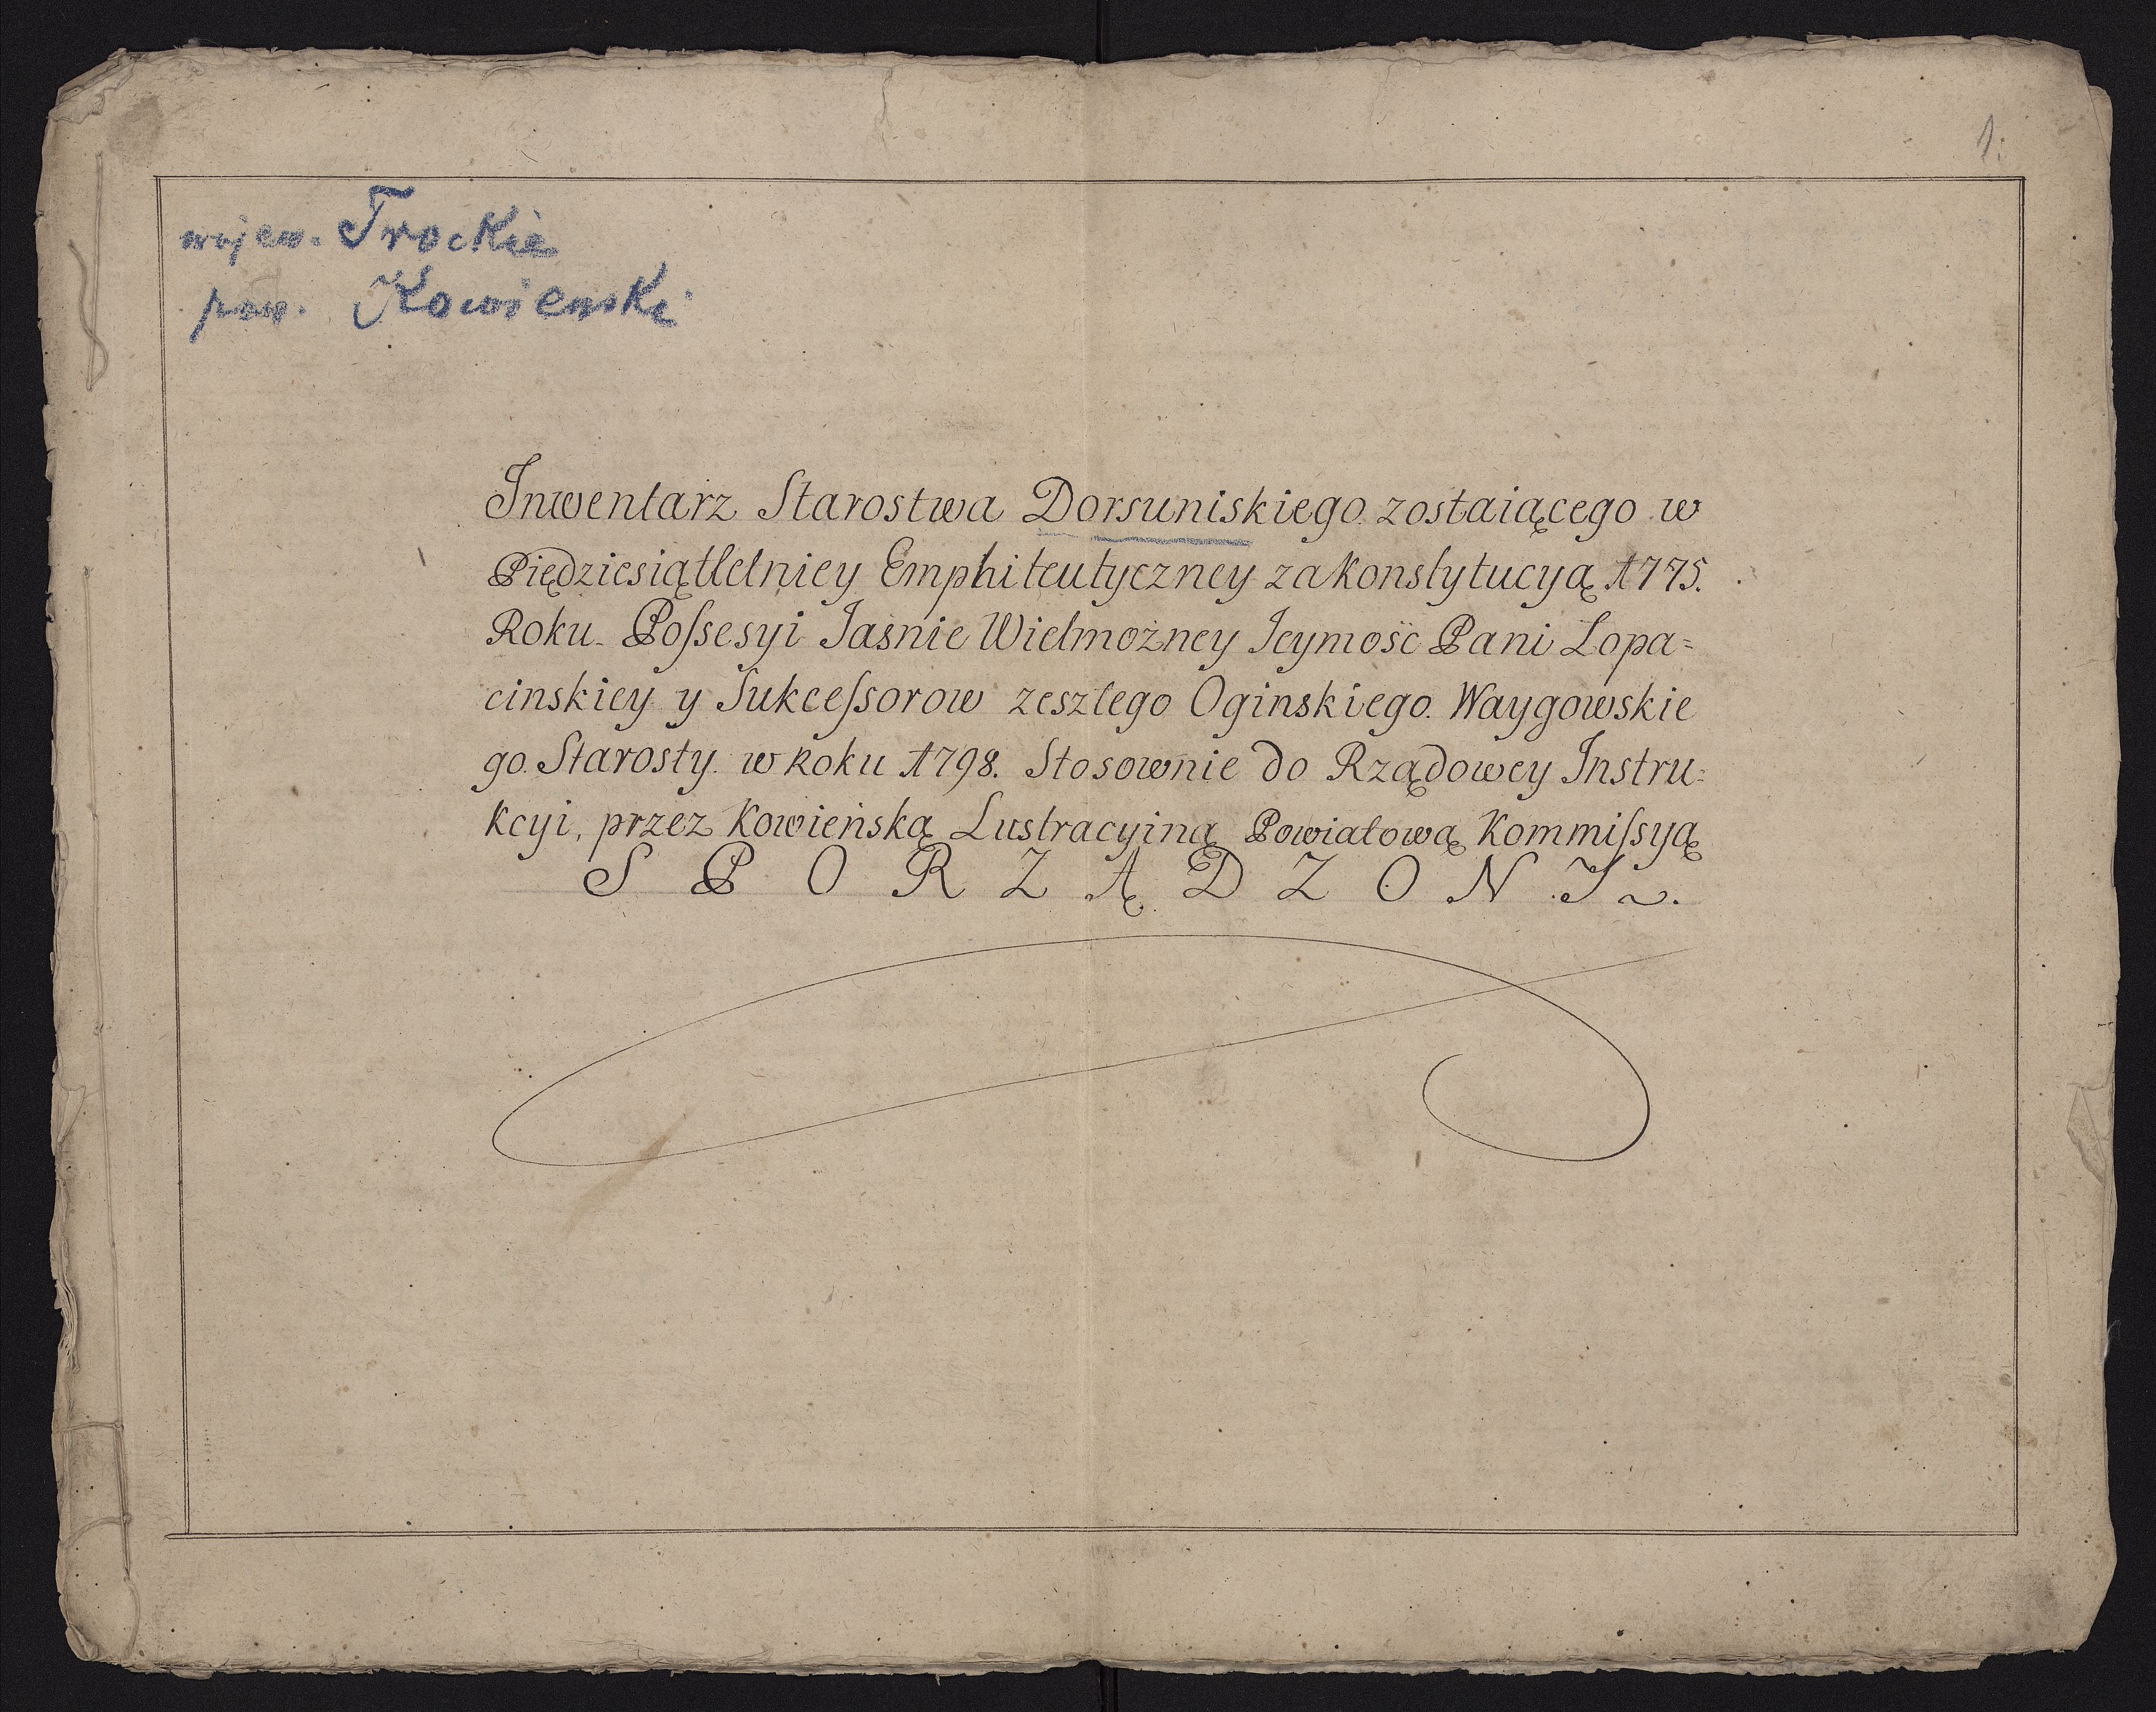 1.
wojew. Trockie
pow. Kowienski
Inwentarz Starostwa Dorsuniskiego zostaiącego w
Piędziesiątletniey Emphiteutyczney za Konstytucyą 1775.
Roku. Poſsesyi Jasnie Wielmożney Jeymość Pani Łopa=
cinskiey y Sukceſsorow zeszłego Oginskiego. Waygowskie
go. Starosty. w Roku 1798. Stosownie do Rządowey Instru=
kcyi, przez Kowieńską Lustracyiną Powiatową Kommiſsyą
SPORZĄDZONY.